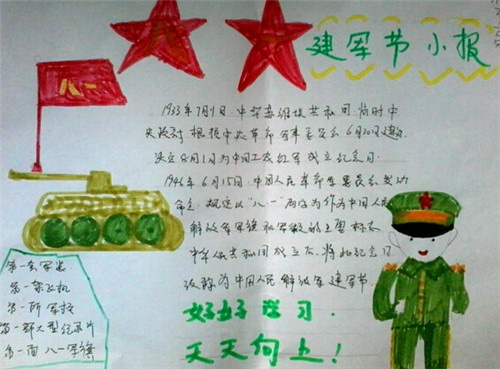 建军节小报
八一
1933年7月1日,中华苏维埃共和国临时中
央政府根据中央革命军事委员会6月30日建议
决定8月1日为中国工农红军成立纪念日.
1946年6月15日,中国人民革命军事委员会发动
命令,规定以"八一"两字作为中国人民
解放军军旗和军徽的主要标志
中华人民共和国成立后,将此纪念日
改称为中国人民解放军建军节.
好好学习.
天天向上!
第一套军装
第一架飞机
第一所军校
第一部大型纪录片
第一面八一军旗